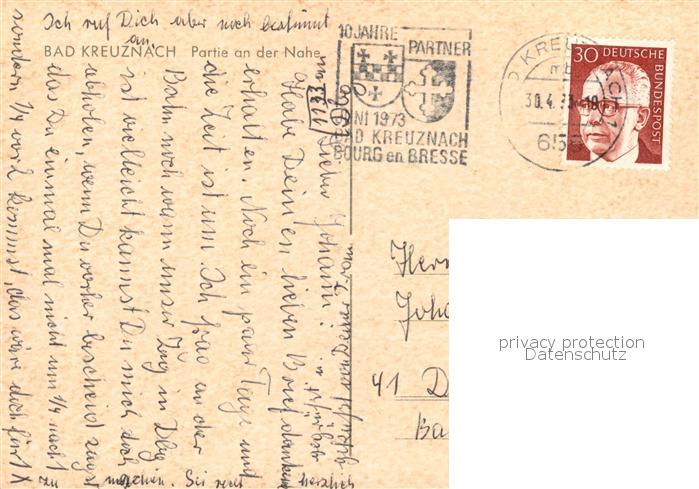 Ich ruf Dich aber noch bestimmt
an.
BAD KREUZNACH Partie an der Nahe
10 JAHRE PARTNER
JUNI 1973
BAD KREUZNACH
BOURG en BRESSE
BAD KREUZNACH 1
30.4.73-18
655
30 DEUTSCHE BUNDESPOST
Lieber Johann!
Habe Deinen lieben Brief dankend
erhalten. Noch ein paar Tage und
die Zeit ist um. Ich frag an der
Bahn noch wann unser Zug in Dbg
ist vielleicht kannst Du mich doch
abholen wenn Du vorher bescheid sagst
das Du einmal mal nicht um 1/4 nach
sondern 1/4 vor 2 kommst, das wäre doch
zu machen. Sei recht herzlich
gegrüßt von Deiner
Herrn
Joha
41 D
Ba
privacy protection
Datenschutz